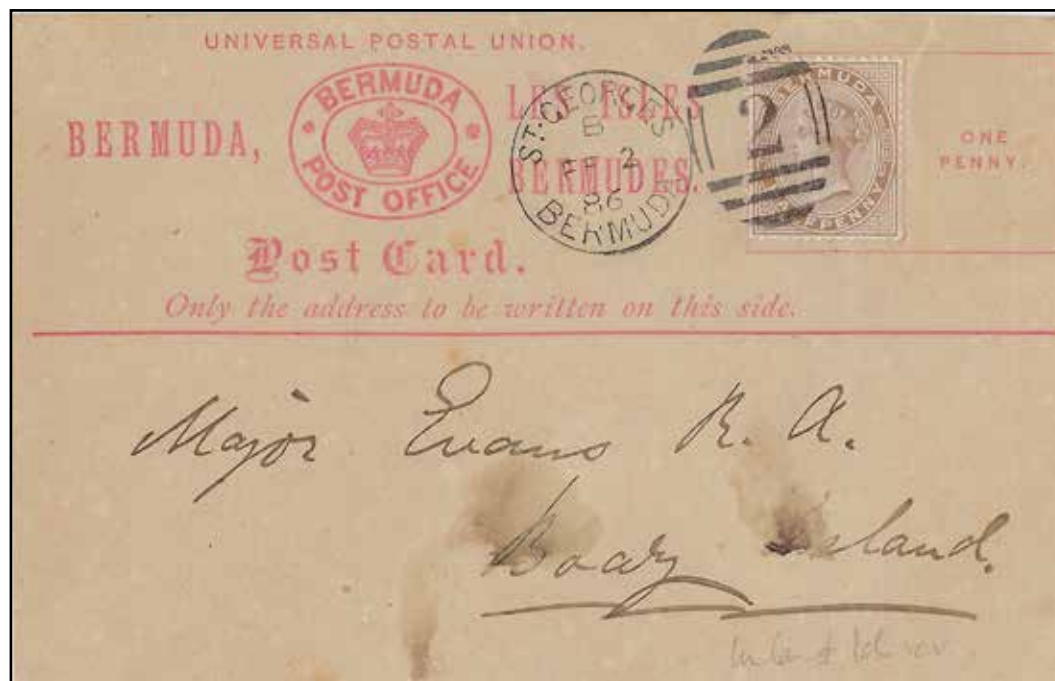 UNIVERSAL POSTAL UNION.
BERMUDA,
BERMUDA
POST OFFICE
LES ISLES
BERMUDES.
ST. GEORGES
B
FE 2
86
BERMUDA
2
BERMUDA
HALFPENNY
ONE
PENNY.
Post Card.
Only the address to be written on this side.
Major Evans R. A.
Boaz Island.